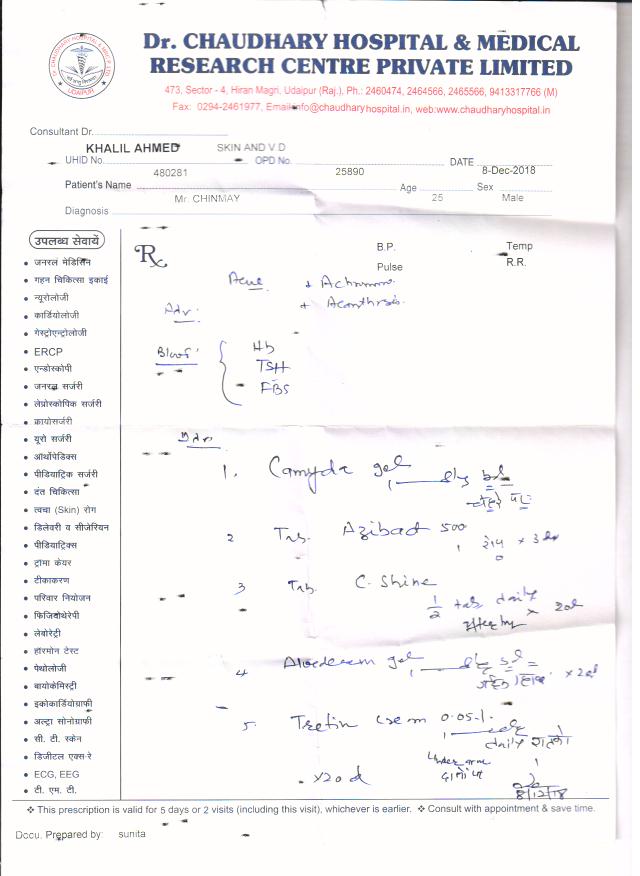 Dr. CHAUDHARY HOSPITAL & MEDICAL
RESEARCH CENTRE PRIVATE LIMITED
473, Sector - 4, Hiran Magri, Udaipur (Raj.). Ph.: 2460474, 2464566, 2465566, 9413317766 (M)
Fax: 0294-2461977, Email:info@chaudharyhospital.in, web:www.chaudharyhospital.in
Consultant Dr.
KHALIL AHMED SKIN AND V.D
UHID No. OPD No. DATE
480281 25890 8-Dec-2018
Patient's Name Age Sex
Mr. CHINMAY 25 Male
Diagnosis
उपलब्ध सेवायें
Rx B.P. Temp
Pulse R.R.
जनरल मेडिसिन
गहन चिकित्सा इकाई
न्यूरोलोजी
कार्डियोलोजी
गेस्ट्रोएन्ट्रोलोजी
ERCP
एन्डोस्कोपी
जनरल सर्जरी
लेप्रोस्कोपिक सर्जरी
क्रायोसर्जरी
यूरो सर्जरी
ऑर्थोपेडिक्स
पीडियाट्रिक सर्जरी
दंत चिकित्सा
त्वचा (Skin) रोग
डिलेवरी व सीजेरियन
पीडियाट्रिक्स
ट्रॉमा केयर
टीकाकरण
परिवार नियोजन
फिजियोथेरेपी
लेबोरेट्री
हॉरमोन टेस्ट
पेथोलोजी
बायोकेमिस्ट्री
इकोकार्डियोग्राफी
अल्ट्रा सोनोग्राफी
सी. टी. स्केन
डिजीटल एक्स-रे
ECG, EEG
टी. एम. टी.
Acne +
+
Adv.
Blood Hb
TSH
FBS
Adv.
1. gel
चेहरे पर
2 Tab. Azibad 500 × 3
3 Tab. C. Shine
1/2 tab daily × 20d
4 Aloederm gel
× 20d
5. Tretin cream 0.05%
daily रात को
Under arm
× 20 d
8/12/18
❖ This prescription is valid for 5 days or 2 visits (including this visit), whichever is earlier. ❖ Consult with appointment & save time.
Dccu. Prepared by: sunita